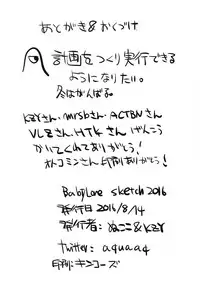 あとがき&おくづけ
計画をつくり実行できる
ようになりたい。
冬はがんばる。
KZYさん・mrsbさん・ACTBNさん
VLZさん・HTKさん げんこう
かいてくれてありがとう!
オトコミンさん印刷ありがとう!
Babylone sketch 2016
発行日 2016/8/14
発行者: ぬここ&KZY
twitter: aquaa4
印刷: キンコーズ